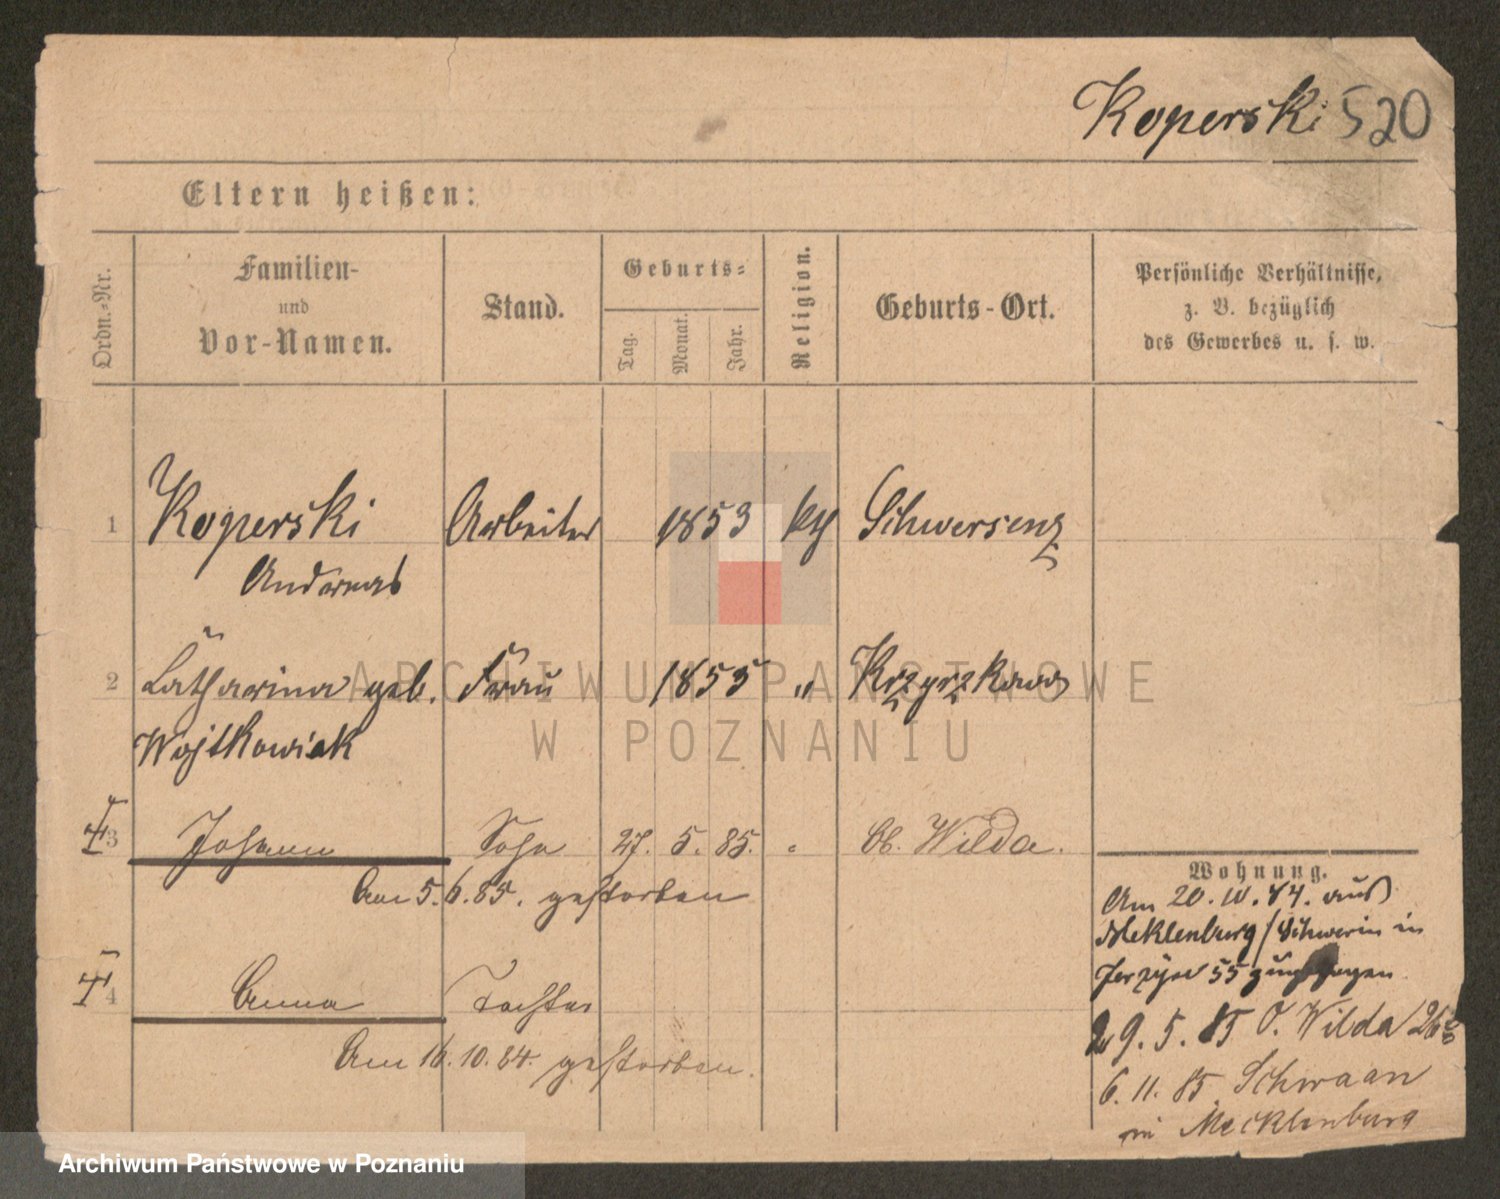 Koperski 520
Eltern heißen:
Ordn.-Nr.
Familien-
und
Vor-Namen.
Stand.
Geburts-
Tag.
Monat.
Jahr.
Religion.
Geburts-Ort.
Persönliche Verhältnisse,
z. B. bezüglich
des Gewerbes u. s. w.
1 Koperski Arbeiter 1853 kth Schwersenz
Andreas
2 Catharina geb. Frau 1855 " Krzyrzkowo
Wojtkowiak
3 Johann Sohn 27. 5. 85. " Ob. Wilda.
Am 5. 6. 85. gestorben
4 Anna Tochter
Am 16. 10. 84. gestorben.
Wohnung.
Am 20. 10. 84. aus
Meklenburg/Schwerin in
Jerzyce 55 zugezogen
29. 5. 85 O. Wilda
6. 11. 85 Schwaan
in Mecklenburg
ARCHIWUM PAŃSTWOWE
W POZNANIU
Archiwum Państwowe w Poznaniu